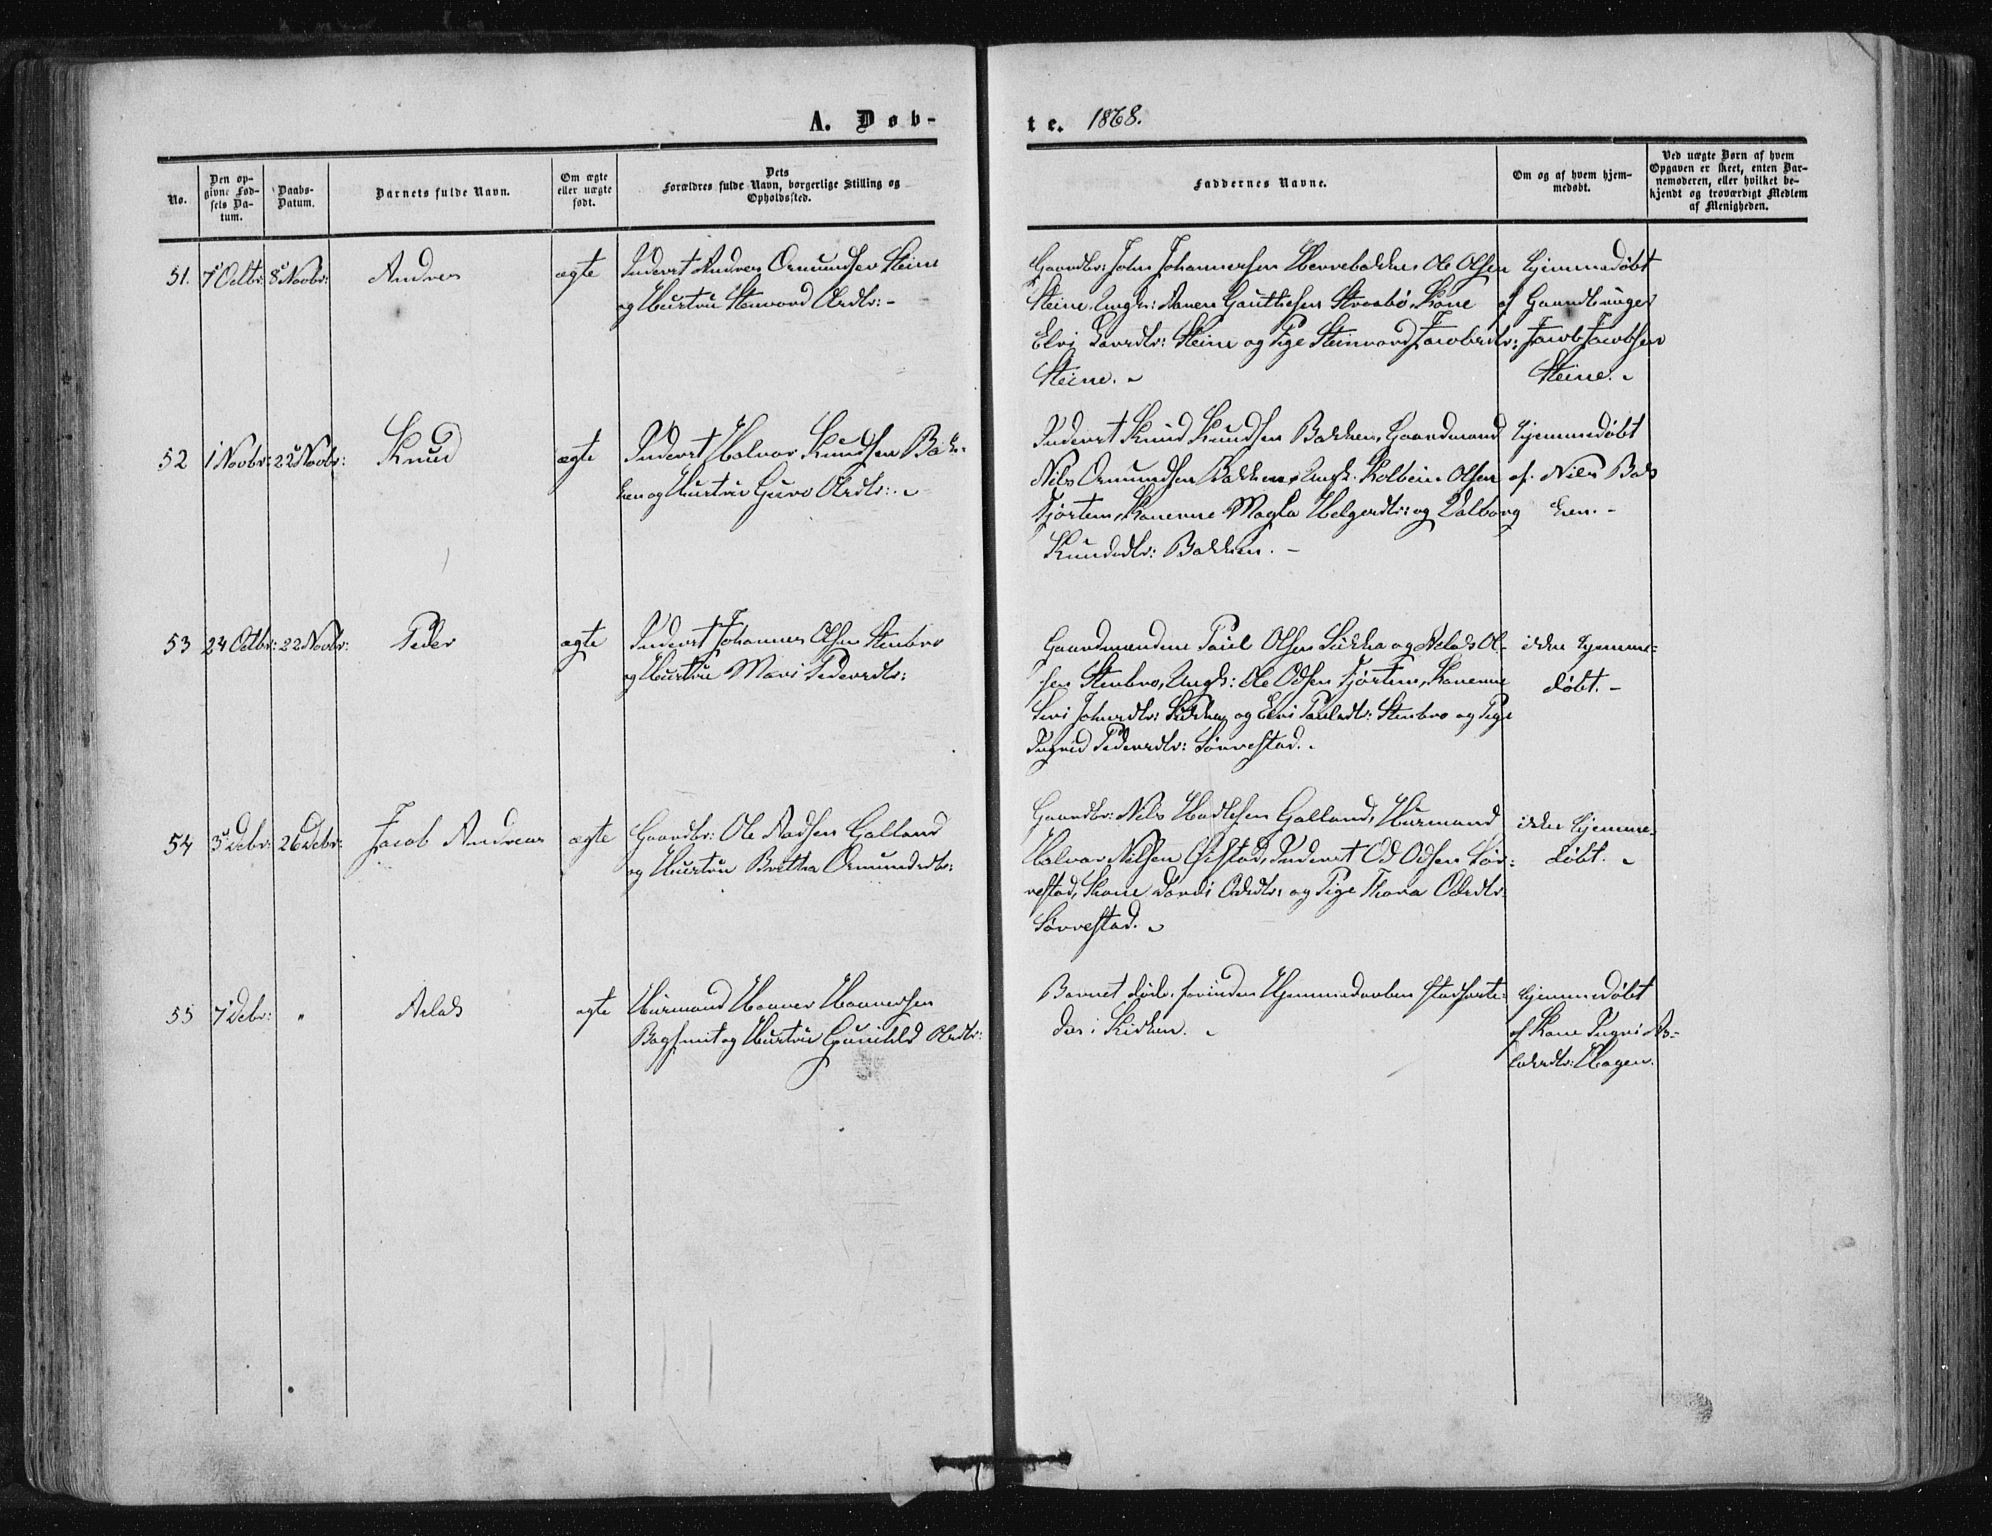 A. Døb-
te. 1868.
No.
Den op-
givne Fød-
sels Da-
tum.
Daabs-
Datum.
Barnets fulde Navn.
Om ægte
eller uægte
født.
Dets
Forældres fulde Navn, borgerlige Stilling og
Opholdssted.
Faddernes Navne.
Om og af hvem hjem-
medøbt.
Ved uægte Børn af hvem
Opgaven er skeet, enten Bar-
nemoderen, eller hvilket be-
kjendt og troværdigt Medlem
af Menigheden.
51. 7 Octbr: 8 Novbr: Andres ægte
Inderst Andres Omundsen Steine
og Hustru Steinvord Olsdtr: -
Gaardbr: John Johannessen Herrebakken Ole Olsen
Steine, Ungk: Gauthesen Strabø, Kone
Elvi Steine og Pige Steinvord Jacobsdtr:
Steine.
hjemmedøbt
af Gaardbruger
Jacob Jacobsen
Steine.
52 1 Novbr: 22 Novbr: Knud ægte
Inderst Halvor Knudsen Bak-
ken og Hustru Guro Olsdtr:
Inderst Knud Knudsen Bakken, Gaardmand
Nils Omundsen Bakken, Ungk: Kolbein Olsen
Fjørtem, Konerne Magla Helgesdtr: og Valborg
Knudsdtr: Bakken. -
hjemmedøbt
af Nils Bak
ken. -
53 24 Octbr: 22 Novbr: Peder ægte
Inderst Johannes Olsen Stenbro
og Hustru Mari Pedersdtr:
Gaardmændene Paul Olsen og Aslak Ol-
sen Stenbro, Ungk: Ole Odsen Fjørtem, Konerne
Sivi Johnsdtr: og Elvi Paulsdtr: Stenbro og Pige
Ingrid Pedersdtr: Sørrestad.
ikke hjemme-
døbt. -
54 3 Debr: 26 Debr: Jacob Andreas ægte
Gaardbr: Ole Aadsen Golland
og Hustru Britha Omundsdtr:
Gaardbr: Nils Hadlesen Golland, Huusmand
Halvor Nilsen Inderst Od Odsen Sør-
restad, Kone Dordi Odsdtr: og Pige Thora Odsdtr:
Sørrestad.
ikke hjemme-
døbt.
55 7 Debr: " Aslak ægte
Huusmand Hover Hoversen
og Hustru Gunhild Olsdtr:
Barnet døde, forinden Hjemmedaaben stadfæste-
des i Kirken.
hjemmedøbt
af Kone Ingri As-
laksdtr: Hagen.